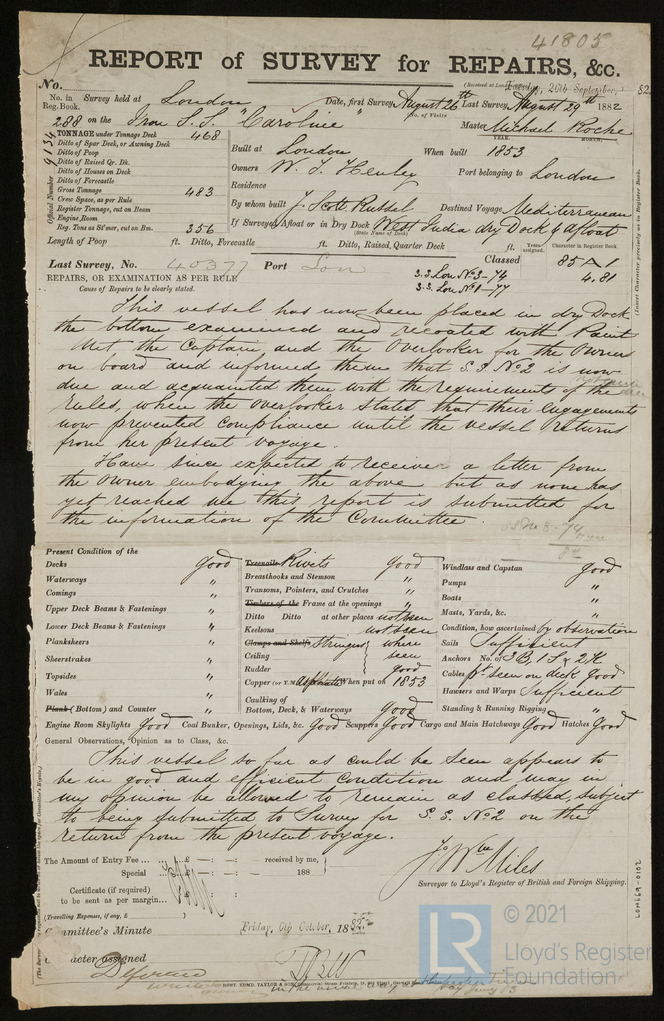 41805
REPORT of SURVEY for REPAIRS, &c.
No.
(Received at London 26th September, 82
No. in Reg. Book. Survey held at London Date, first Survey August 26th Last Survey August 29th 1882
No. of Visits
288 on the Iron S.S. "Caroline" Master Michael Roche
Official Number 9134
TONNAGE under Tonnage Deck 468
Ditto of Spar Deck, or Awning Deck
Ditto of Poop
Ditto of Raised Qr. Dk.
Ditto of Houses on Deck
Ditto of Forecastle
Gross Tonnage 483
Crew Space, as per Rule
Register Tonnage, cut on Beam
Engine Room
Reg. Tons as St'mer, cut on Bm. 356
YEAR. MONTH.
Built at London When built 1853
Owners W. T. Henley Port belonging to London
Residence
By whom built J. Scott Russel Destined Voyage Mediterranean
If Surveyed Afloat or in Dry Dock West India dry Dock & afloat
(State Name of Dock.)
Length of Poop ft. Ditto, Forecastle ft. Ditto, Raised, Quarter Deck ft.
Years assigned. Character in Register Book
Last Survey, No. 40377 Port Lon Classed 85 A 1
4.81
REPAIRS, OR EXAMINATION AS PER RULE
S.S. Lon No 3-74
S.S. Lon No 1-77
Cause of Repairs to be clearly stated.
(Insert Character precisely as in Register Book.
This vessel has now been placed in dry Dock
the bottom examined and recoated with Paint
Met the Captain and the Overlooker for the Owners
on board and informed them that S.S. No 2 is now
due and acquainted them with the requirements of the
Rules, when the overlooker stated that their engagements
now prevented compliance until the vessel returns
from her present voyage.
Have since expected to receive a letter from
the owner embodying the above but as none has
yet reached me this report is submitted for
the information of the Committee.
Present Condition of the
Decks good
Waterways "
Comings "
Upper Deck Beams & Fastenings "
Lower Deck Beams & Fastenings "
Planksheers "
Sheerstrakes "
Topsides "
Wales "
Plank (Bottom) and Counter "
Treenails Rivets good
Breasthooks and Stemson "
Transoms, Pointers, and Crutches "
Timbers of the Frame at the openings "
Ditto Ditto at other places not seen
Keelsons not seen
Clamps and Shelfs Stringers where
Ceiling seen
Rudder good
Copper (or Y.M. When put on 1853
Caulking of
Bottom, Deck, & Waterways good
Windlass and Capstan good
Pumps "
Boats "
Masts, Yards, &c. "
Condition, how ascertained by observation
Sails Sufficient
Anchors No. of 3B, 1S & 2K
Cables pt seen on deck good
Hawsers and Warps Sufficient
Standing & Running Rigging "
Engine Room Skylights good Coal Bunker, Openings, Lids, &c. Good Scuppers Good Cargo and Main Hatchways Good Hatches Good
General Observations, Opinion as to Class, &c.
This vessel so far as could be seen appears to
be in good and efficient condition and may in
my opinion be allowed to remain as classed, subject
to being submitted to Survey for S.S. No 2 on the
return from the present voyage.
The Amount of Entry Fee ... £ : : received by me,
Special ... £ : : 188
Certificate (if required)
to be sent as per margin...
(Travelling Expenses, if any, £
Jo Wm Miles
Surveyor to Lloyd's Register of British and Foreign Shipping.
Committee's Minute Friday, 6th October, 1882
Character assigned
LON669-0102
© 2021
LR
Lloyd's Register
Foundation